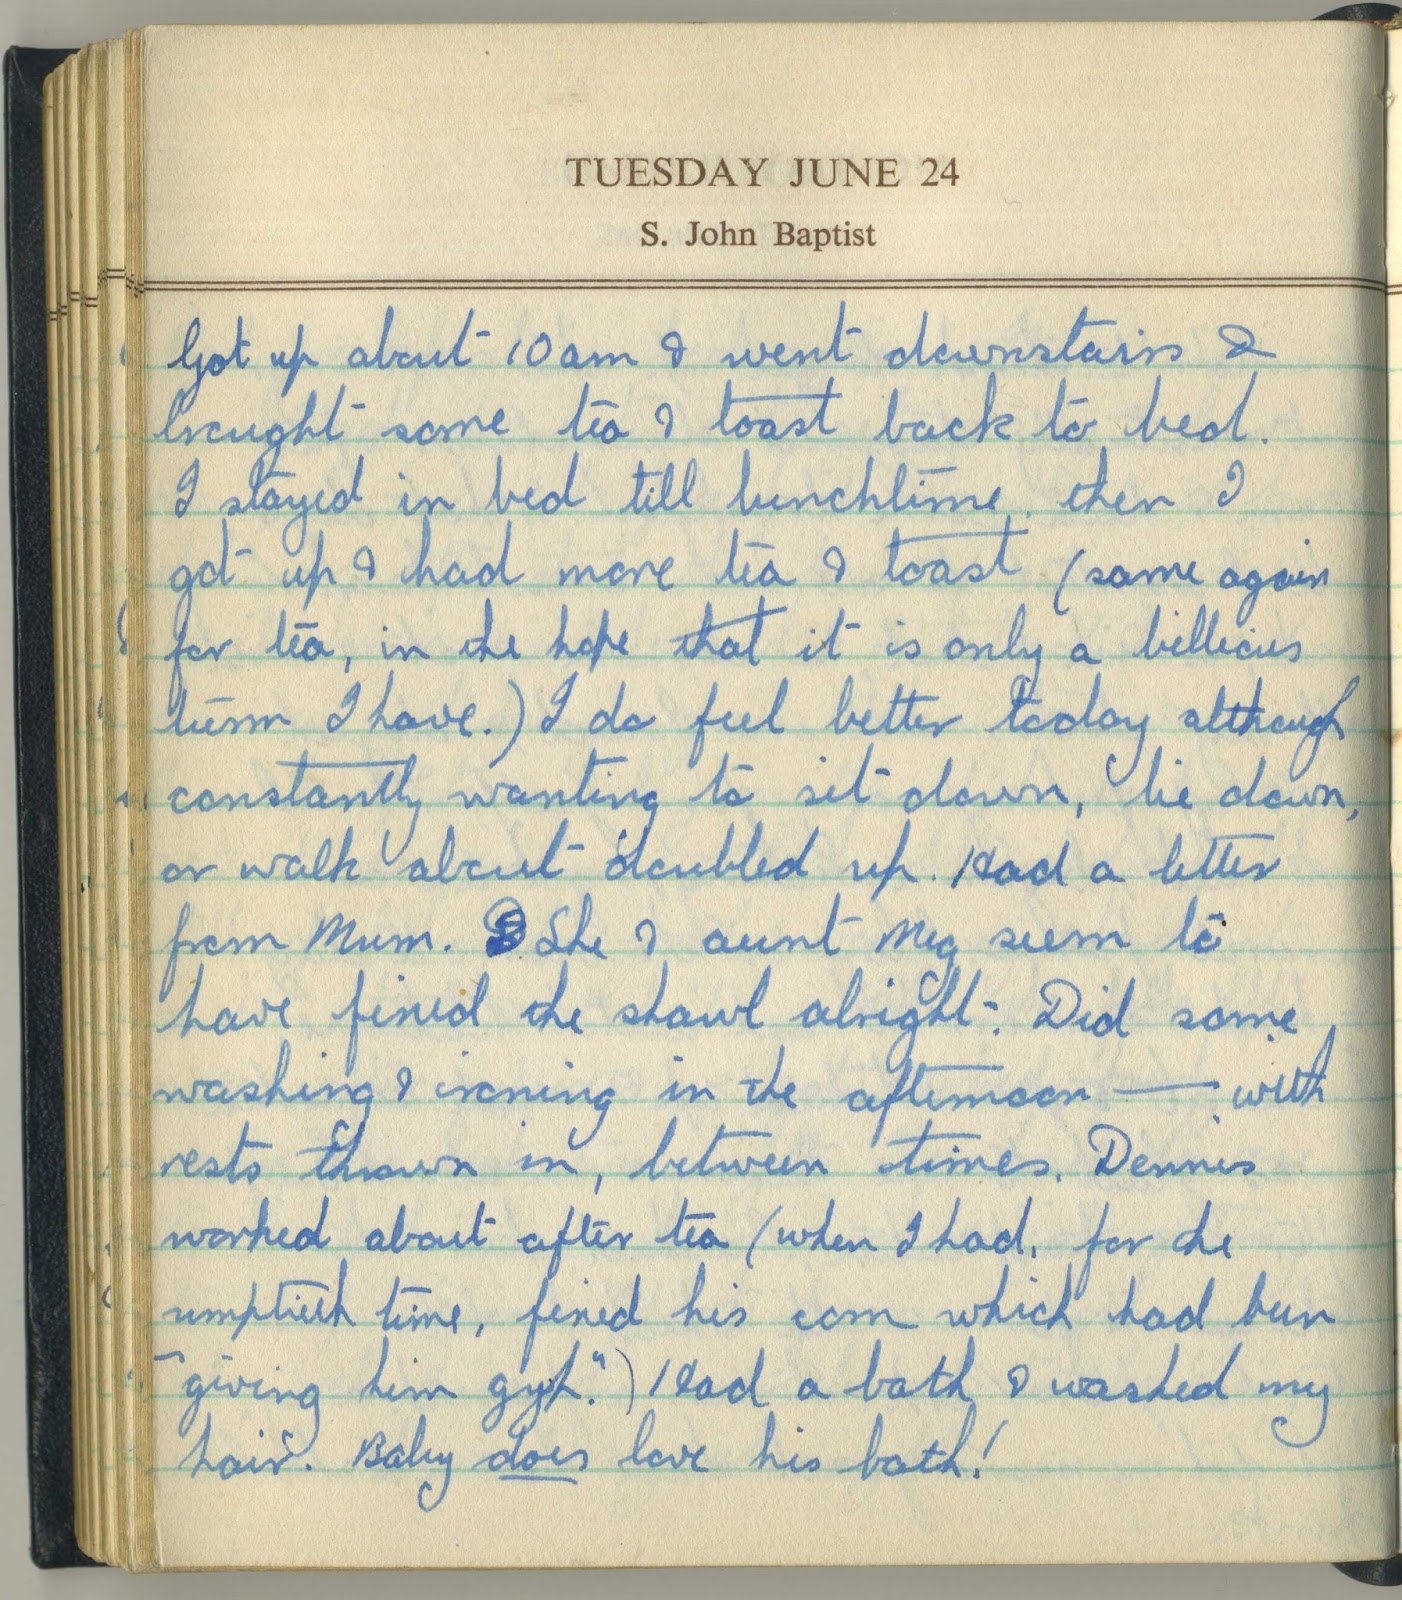 TUESDAY JUNE 24
S. John Baptist
Got up about 10am & went downstairs &
brought some tea & toast back to bed.
I stayed in bed till lunchtime, then I
got up & had more tea & toast (same again
for tea, in the hope that it is only a billious
turn I have.) I do feel better today although
constantly wanting to sit down, lie down,
or walk about doubled up. Had a letter
from Mum. She & aunt Meg seem to
have fixed the shawl alright. Did some
washing & ironing in the afternoon — with
rests thrown in, between times. Dennis
worked about after tea (when I had, for the
umptieth time, fixed his corn which had been
"giving him gyp.") Had a bath & washed my
hair. Baby does love his bath!